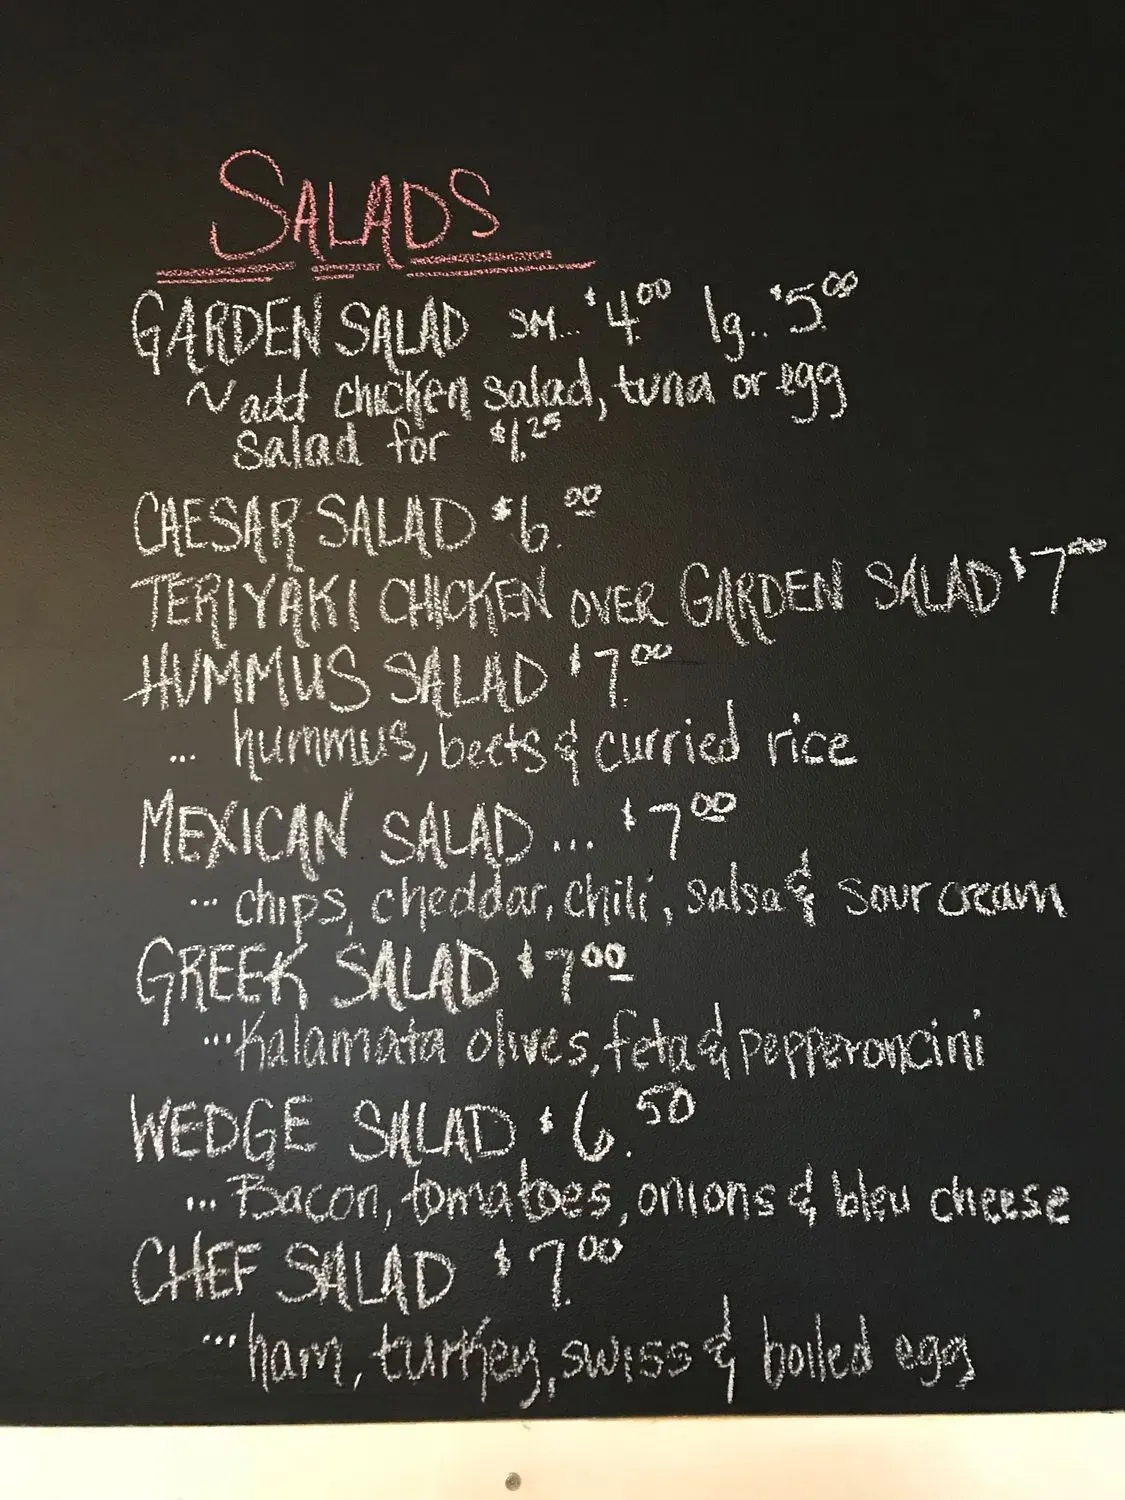 SALADS
GARDEN SALAD SM... $4.00 lg.. $5.00
~ add chicken salad, tuna or egg
salad for $1.25
CAESAR SALAD $6.00
TERIYAKI CHICKEN OVER GARDEN SALAD $7.00
HUMMUS SALAD $7.00
... hummus, beets & curried rice
MEXICAN SALAD... $7.00
... chips, cheddar, chili, salsa & sour cream
GREEK SALAD $7.00
...Kalamata olives, feta & pepperoncini
WEDGE SALAD $6.50
... Bacon, tomatoes, onions & bleu cheese
CHEF SALAD $7.00
...ham, turkey, swiss & boiled egg